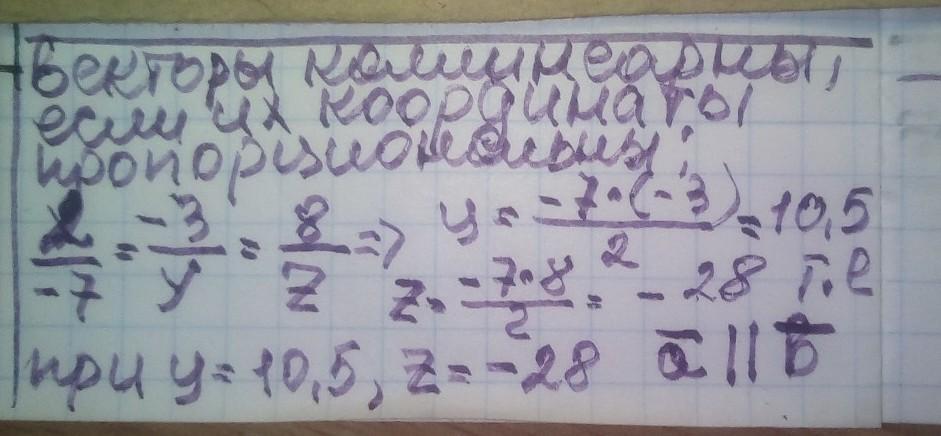 Векторы коллинеарны,
если их координаты
пропорциональны:
2/-7 = -3/y = 8/z => y = -7·(-3)/2 = 10,5
z = -7·8/2 = -28 т.е
при y = 10,5, z = -28 a̅ || b̅